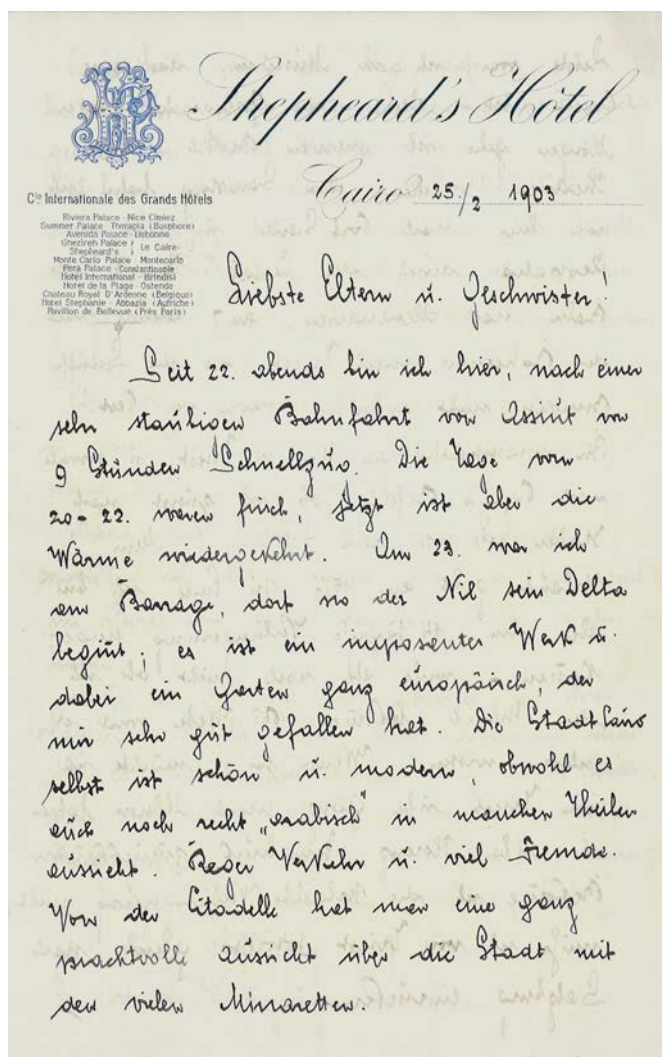 Shepheard's Hôtel
Cairo 25./2 1903
Cie Internationale des Grands Hôtels
Riviera Palace - Nice Cimiez
Summer Palace - Therapia (Bosphore)
Avenida Palace - Lisbonne
Ghezireh Palace
Shepheard's
Le Caire
Monte Carlo Palace - Montecarlo
Pera Palace - Constantinople
Hôtel International - Brindisi
Hotel de la Plage - Ostende
Chateau Royal D'Ardenne (Belgique)
Hotel Stephanie - Abbazia (Autriche)
Pavillon de Bellevue (Près Paris)
Liebste Eltern u. Geschwister!
Seit 22. abends bin ich hier, nach einer
sehr staubigen Bahnfahrt von Assiut von
9 Stunden Schnellzug. Die Tage vom
20-22. waren frisch, jetzt ist aber die
Wärme wiedergekehrt. Am 23. war ich
am Barrage, dort wo der Nil sein Delta
begint; es ist ein imposantes Werk u.
dabei ein Garten ganz europäisch, der
mir sehr gut gefallen hat. Die Stadt Cairo
selbst ist schön u. modern, obwohl es
auch noch recht „arabisch" in manchen Theilen
aussieht. Reger Verkehr u. viel Fremde.
Von der Citadelle hat man eine ganz
prachtvolle Aussicht über die Stadt mit
den vielen Minaretten.